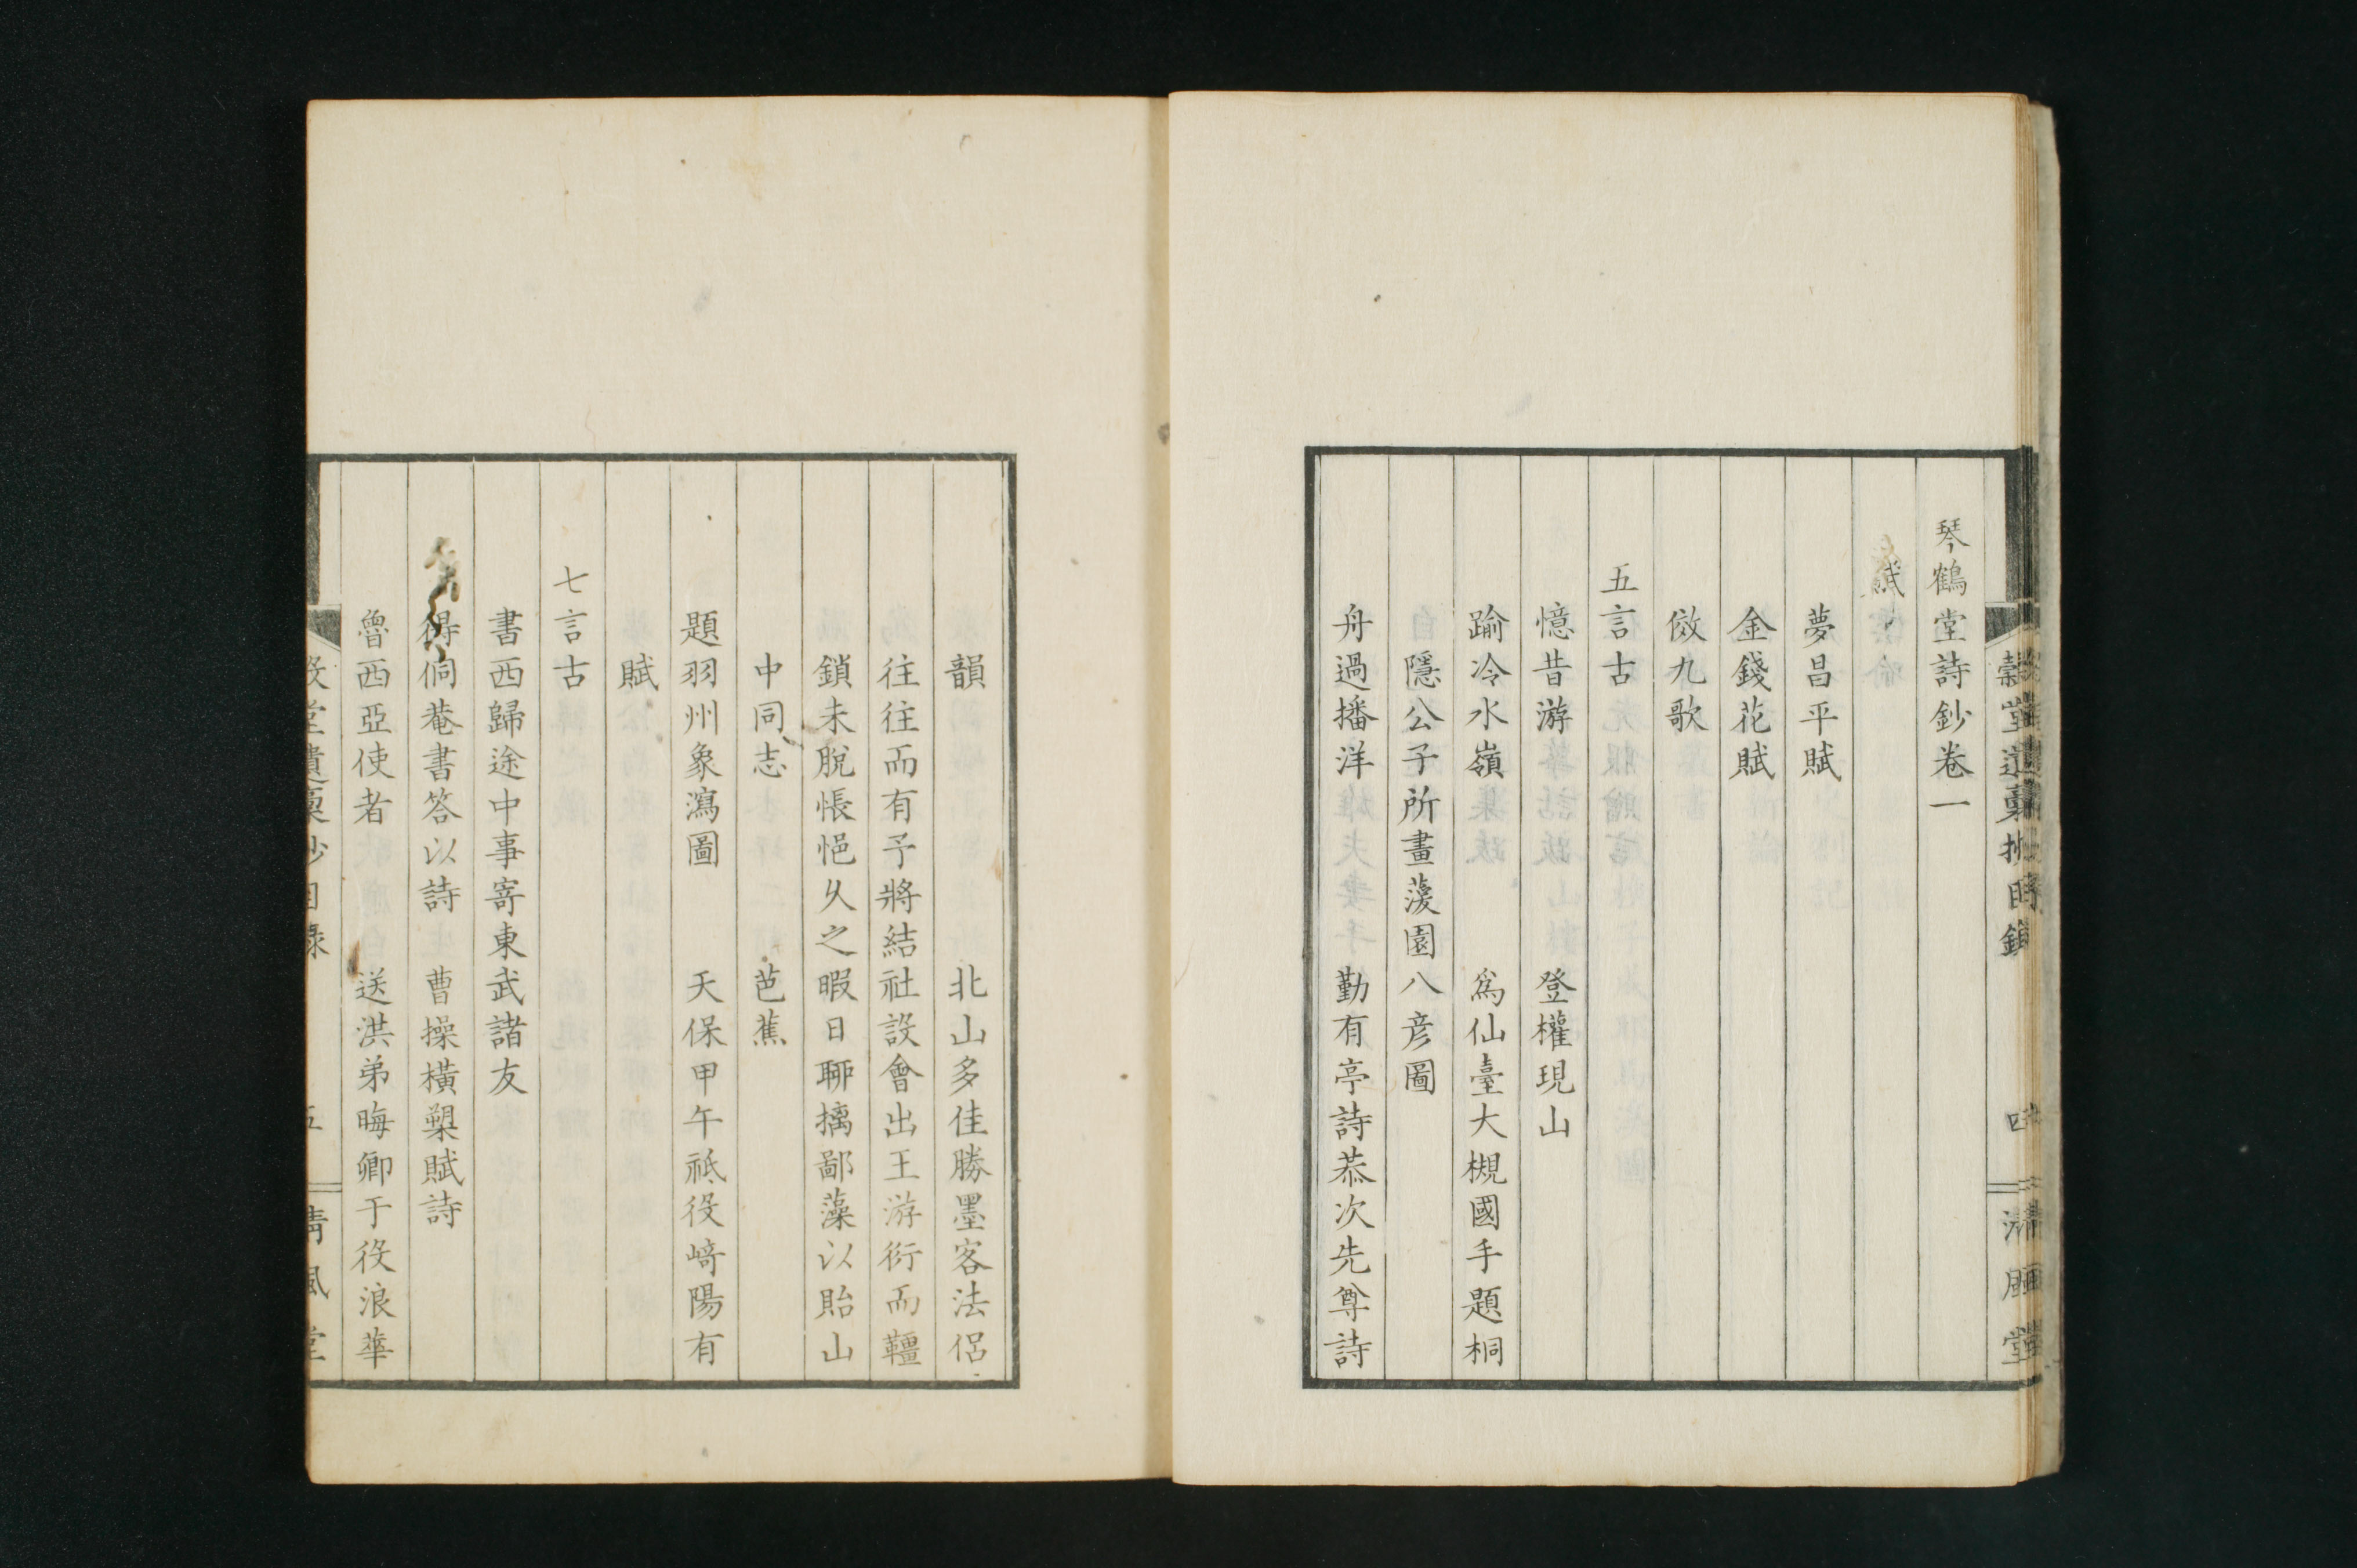 琴鶴堂詩鈔卷一
賦
夢昌平賦
金錢花賦
倣九歌
五言古
憶昔游　登權現山
踰冷水嶺　爲仙臺大槻國手題桐
隱公子所畫薓園八彦圖
舟過播洋　勤有亭詩恭次先尊詩
韻　北山多佳勝墨客法侶
往往而有予將結社設會出王游衍而韁
鎖未脫悵悒久之暇日聊摛鄙藻以貽山
中同志　芭蕉
題羽州象瀉圖　天保甲午祗役﨑陽有
賦
七言古
書西歸途中事寄東武諸友
得侗菴書答以詩　曹操橫槊賦詩
魯西亞使者　送洪弟晦卿于役浪華
五
清風堂